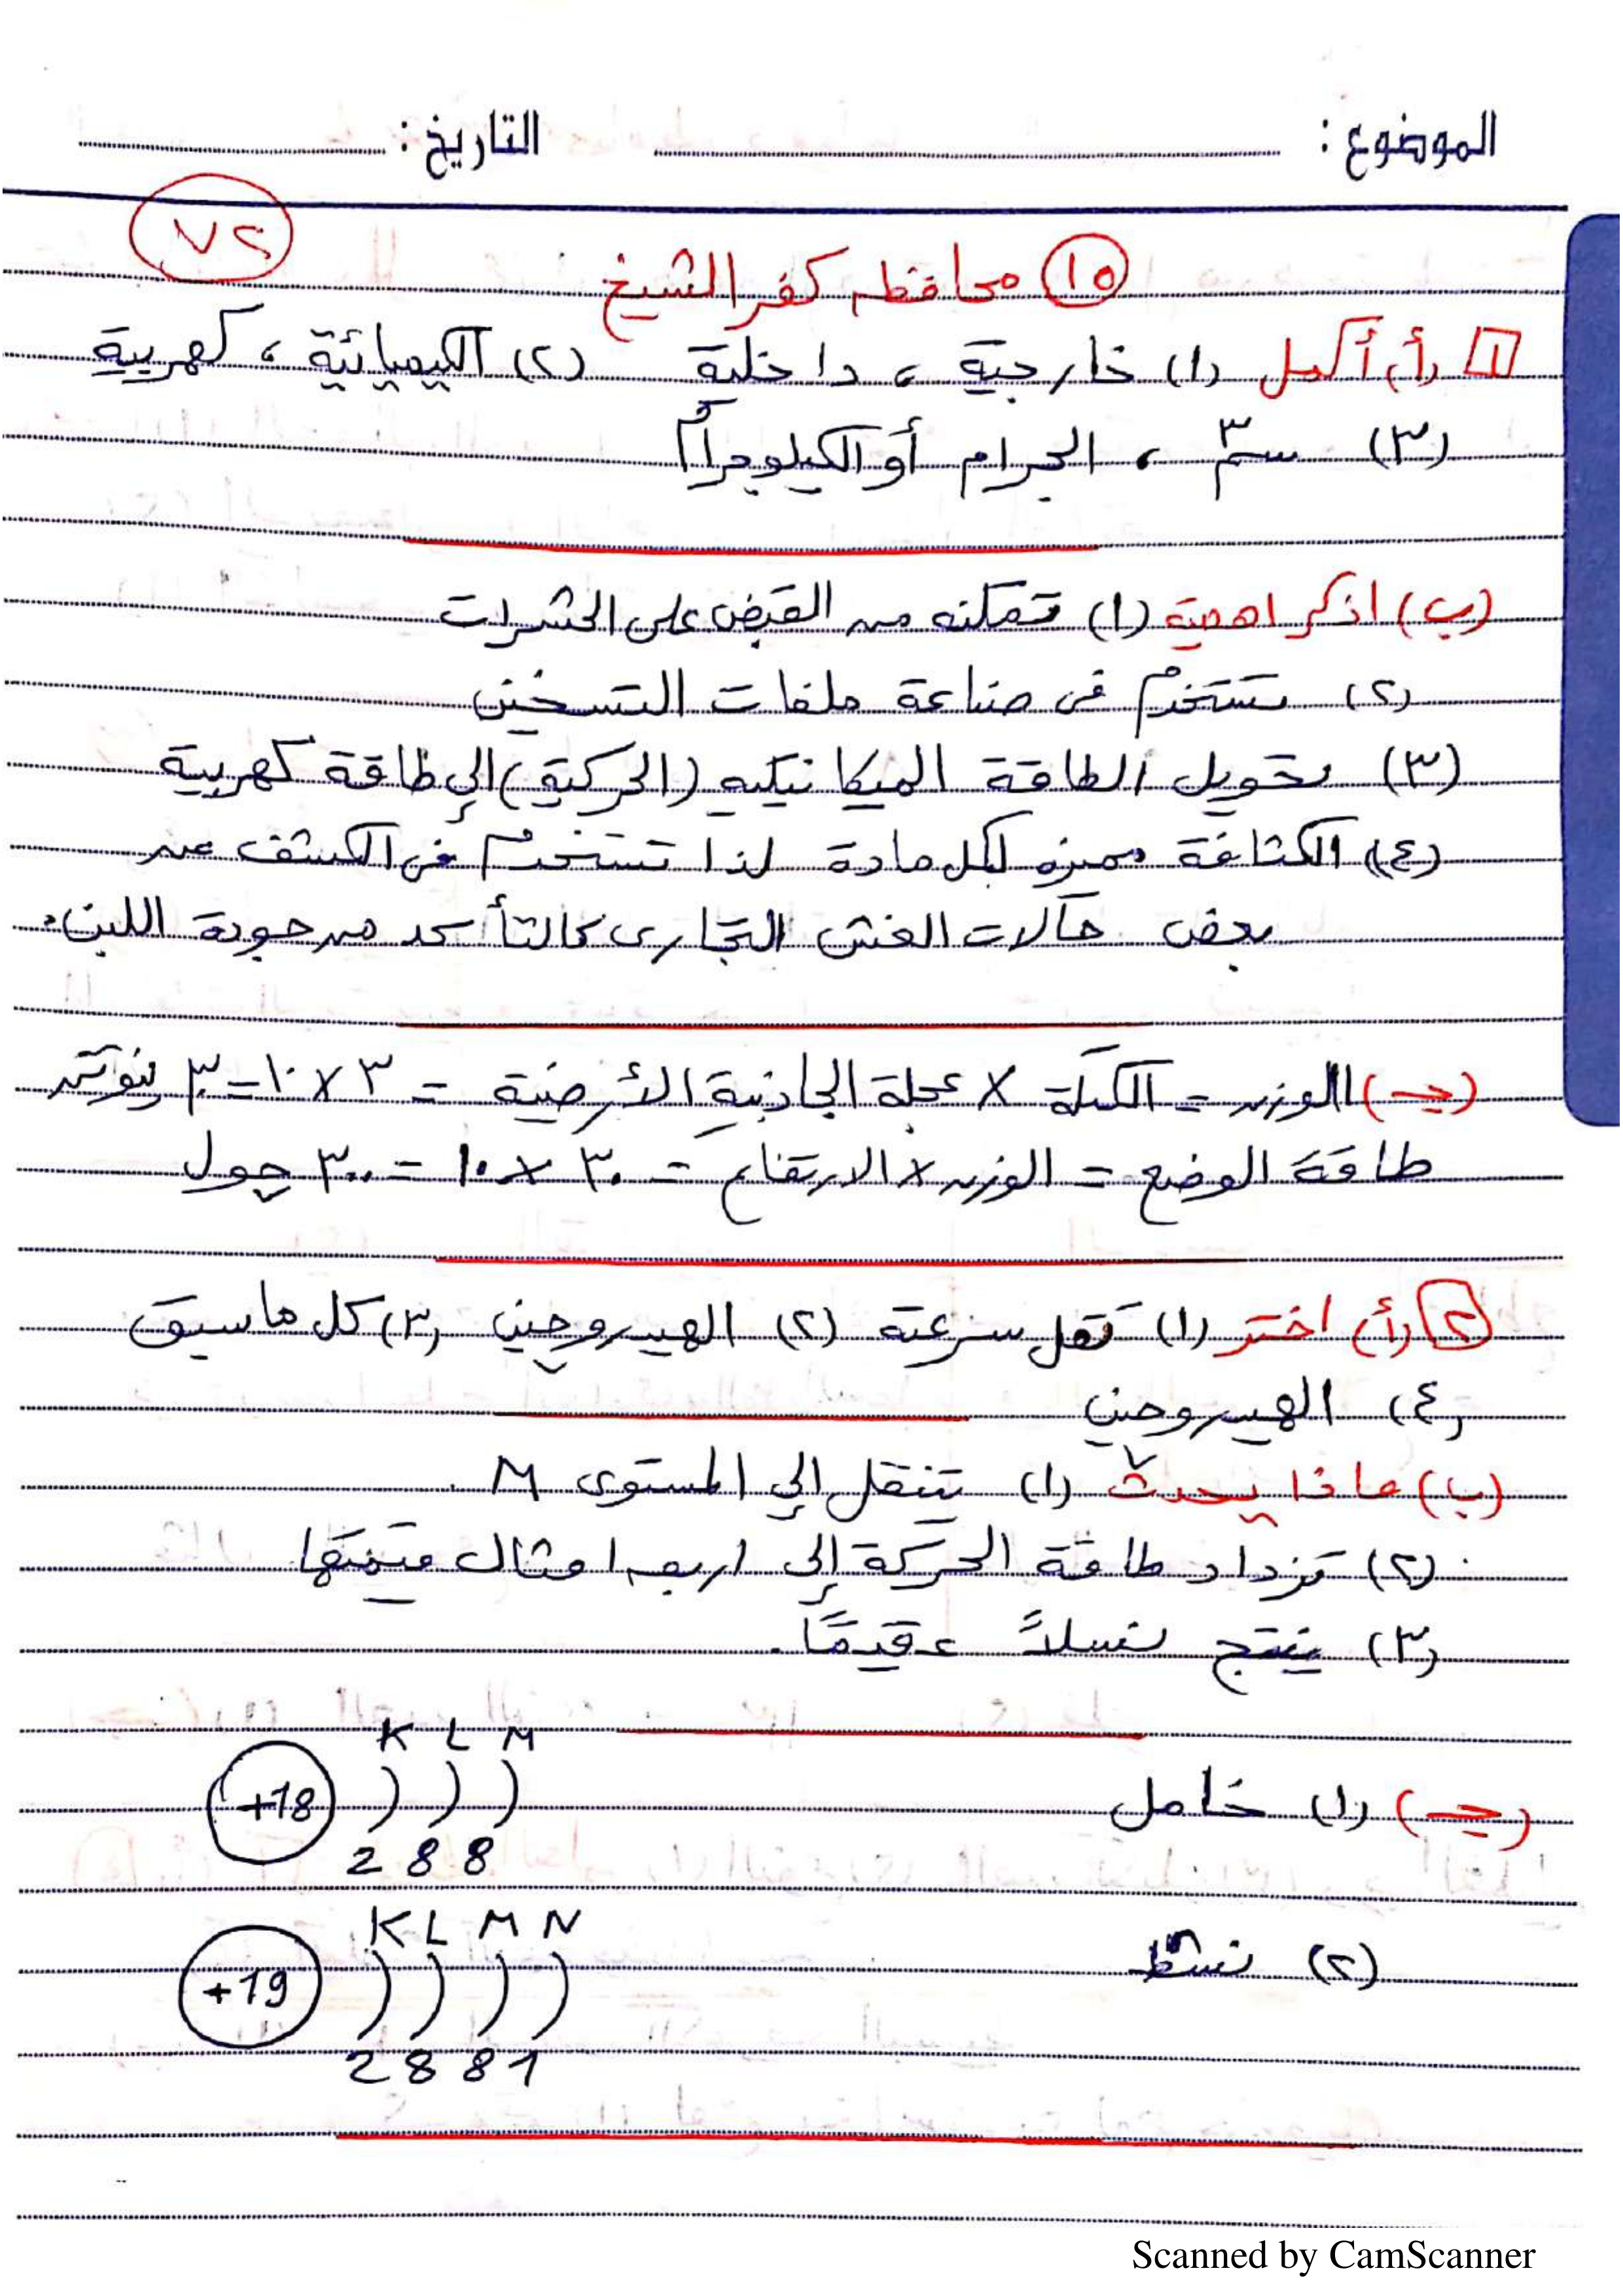 الموضوع: التاريخ:
٧٢
١٥ محافظة كفر الشيخ
١ (أ) أكمل (١) خارجية ، داخلية (٢) الكيميائية ، كهربية
(٣) سم٣ ، الجرام أو الكيلوجرام
(ب) اذكر اهمية (١) تمكنه من القبض على الحشرات
(٢) تستخدم فى صناعة ملفات التسخين
(٣) تحويل الطاقة الميكانيكيه (الحركية) إلى طاقة كهربية
(٤) الكثافة مميزه لكل مادة لذا تستخدم فى الكشف عن
بعض حالات الغش التجارى كالتأكد من جودة اللبن.
(جـ) الوزن = الكتلة × عجلة الجاذبية الأرضية = ٣ × ١٠ = ٣٠ نيوتن
طاقة الوضع = الوزن × الارتفاع = ٣٠ × ١٠ = ٣٠٠ جول
٢ (أ) اختر (١) تقل سرعته (٢) الهيدروجين (٣) كل ما سبق
(٤) الهيدروجين
(ب) ماذا يحدث (١) تنتقل إلى المستوى M.
(٢) تزداد طاقة الحركة إلى اربعه امثال قيمتها
(٣) ينتج نسلاً عقيمًا.
K L M
(جـ) (١) خامل +18
2 8 8
K L M N
(٢) نشط +19
2 8 8 1
Scanned by CamScanner